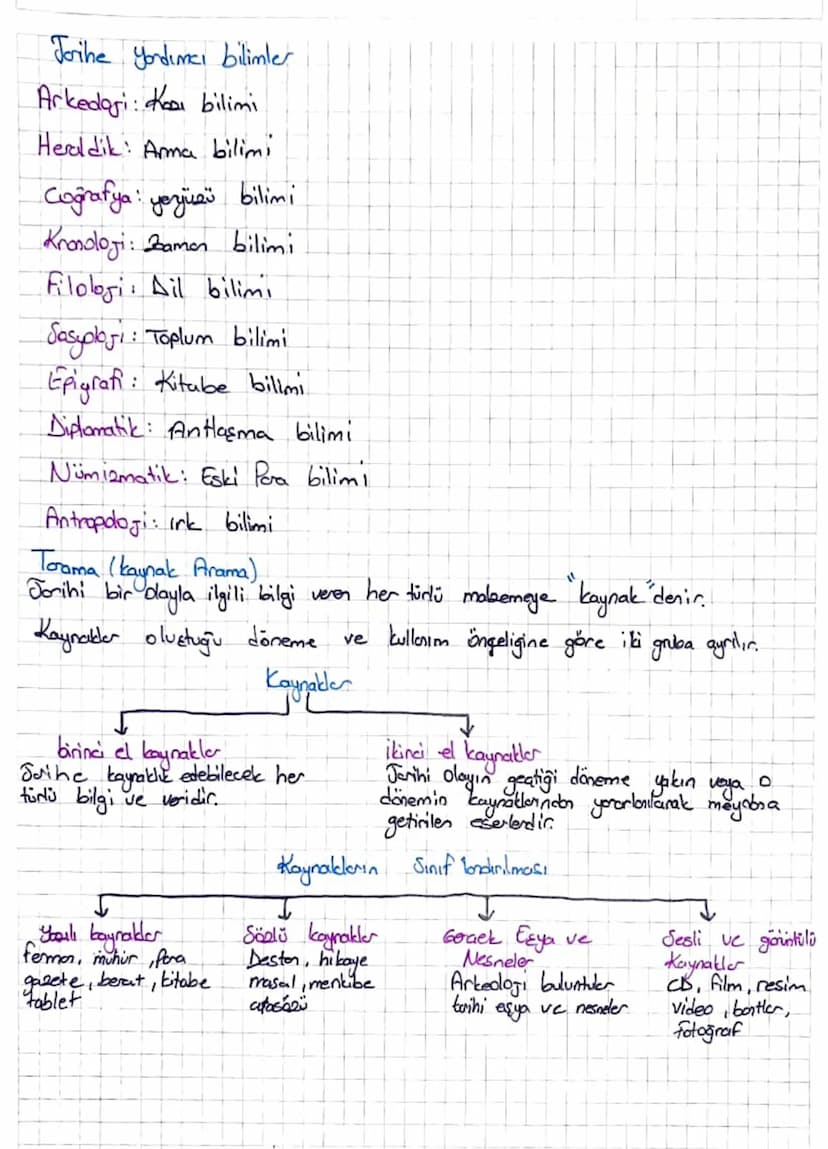 Tarihe yardımcı bilimler
Arkeoloji: Kazı bilimi
Heraldik: Arma bilimi
Coğrafya: yeryüzü bilimi
Kronoloji: Zaman bilimi
Filoloji: Dil bilimi
Sosyoloji: Toplum bilimi
Epigrafi: Kitabe bilimi
Diplomatik: Antlaşma bilimi
Nümizmatik: Eski Para bilimi
Antropoloji: ırk bilimi
Tarama (kaynak Arama)
Tarihi bir olayla ilgili bilgi veren her türlü malzemeye "kaynak" denir.
Kaynaklar oluştuğu döneme ve kullanım önceliğine göre iki gruba ayrılır.
Kaynaklar
birinci el kaynaklar
Tarihe kaynaklık edebilecek her
türlü bilgi ve veridir.
ikinci el kaynaklar
Tarihi olayın geçtiği döneme yakın veya o
dönemin kaynaklarından yararlanılarak meydana
getirilen eserlerdir.
Kaynakların Sınıflandırılması
Yazılı kaynaklar
ferman, mühür, para
gazete, berat, kitabe
tablet
Sözlü kaynaklar
Destan, hikaye
masal, menkıbe
atasözü
Gerçek Eşya ve
Nesneler
Arkeoloji buluntular
tarihi eşya ve nesneler
Sesli ve görüntülü
Kaynaklar
CD, film, resim
video, bantlar,
fotoğraf